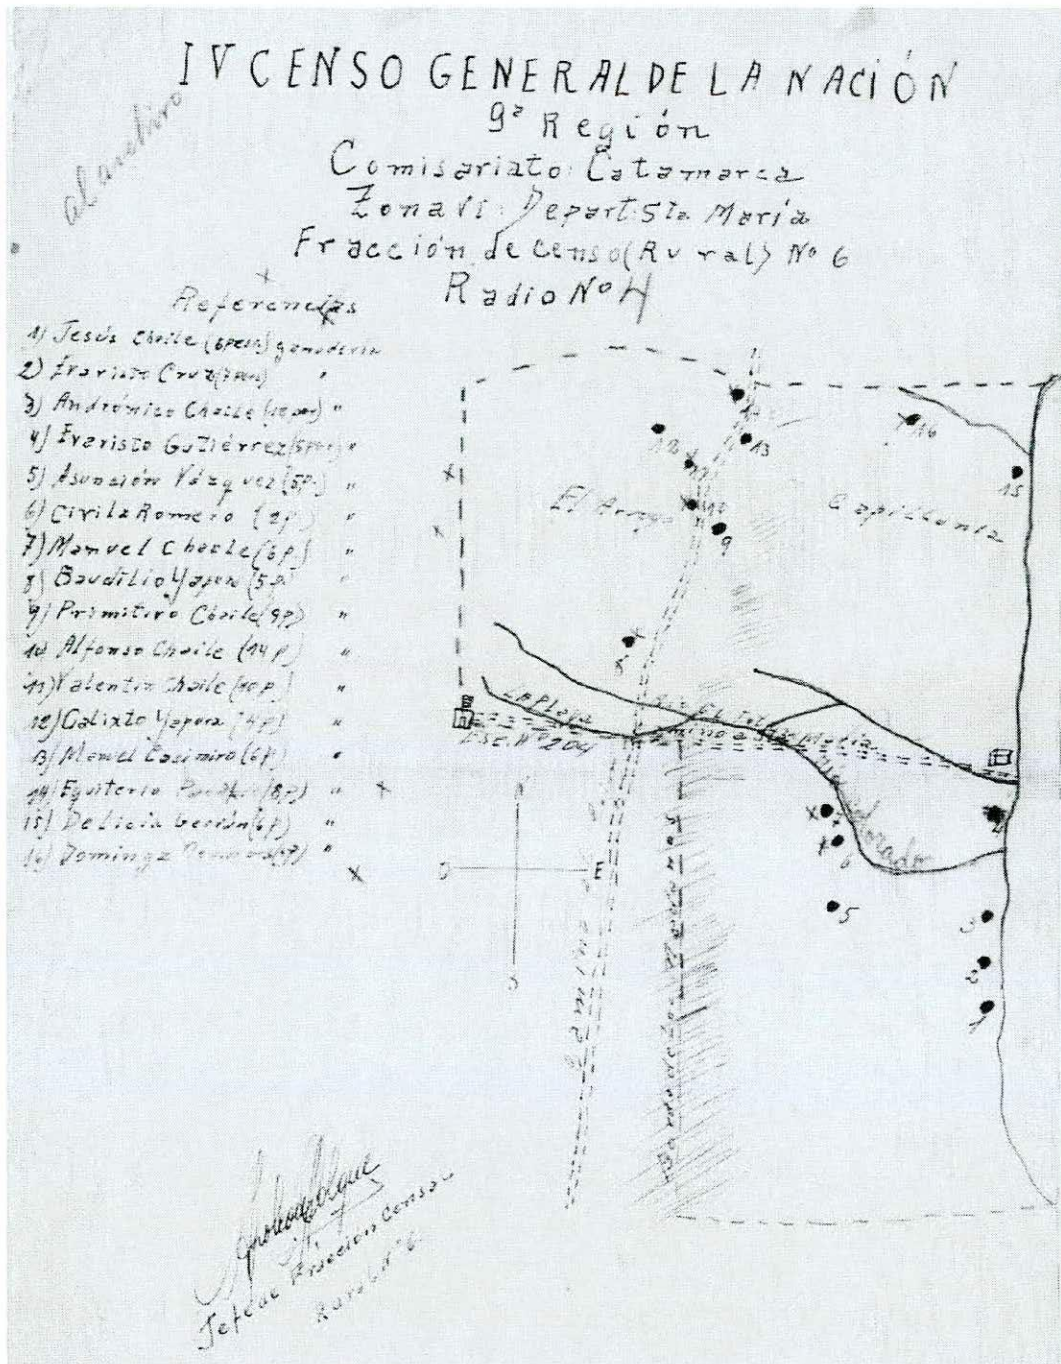 IV CENSO GENERAL DE LA NACIÓN
9ª Región
Comisariato: Catamarca
Zona VI: Depart: Sta María
Fracción de censo (Rural) Nº 6
Radio Nº 4
al archivo
Referencias
1) Jesús Chaile (6 pers) ganadería
2) Evaristo Cruz "
3) Andrónico Chaile "
4) Evaristo Gutiérrez "
5) Asunción Vázquez (5p.) "
6) Civila Romero (2p.) "
7) Manuel Chaile (6p.) "
8) Baudilio Yapura (5p.) "
9) Primitivo Chaile (9p) "
10 Alfonso Chaile (14p) "
11) Valentín Chaile (10p.) "
12) Calixto Yapura (4p) "
13) Manuel Casimiro (6p) "
14) (8p) "
15) Delicia (6p) "
16) Dominga "
14
12
13
16
11
15
El Arroyo
10
9
8
La Playa
Esc. Nº 204
N
7
4
6
O
E
5
3
2
S
1
Jefe de Fracción Censal
Rural Nº 6